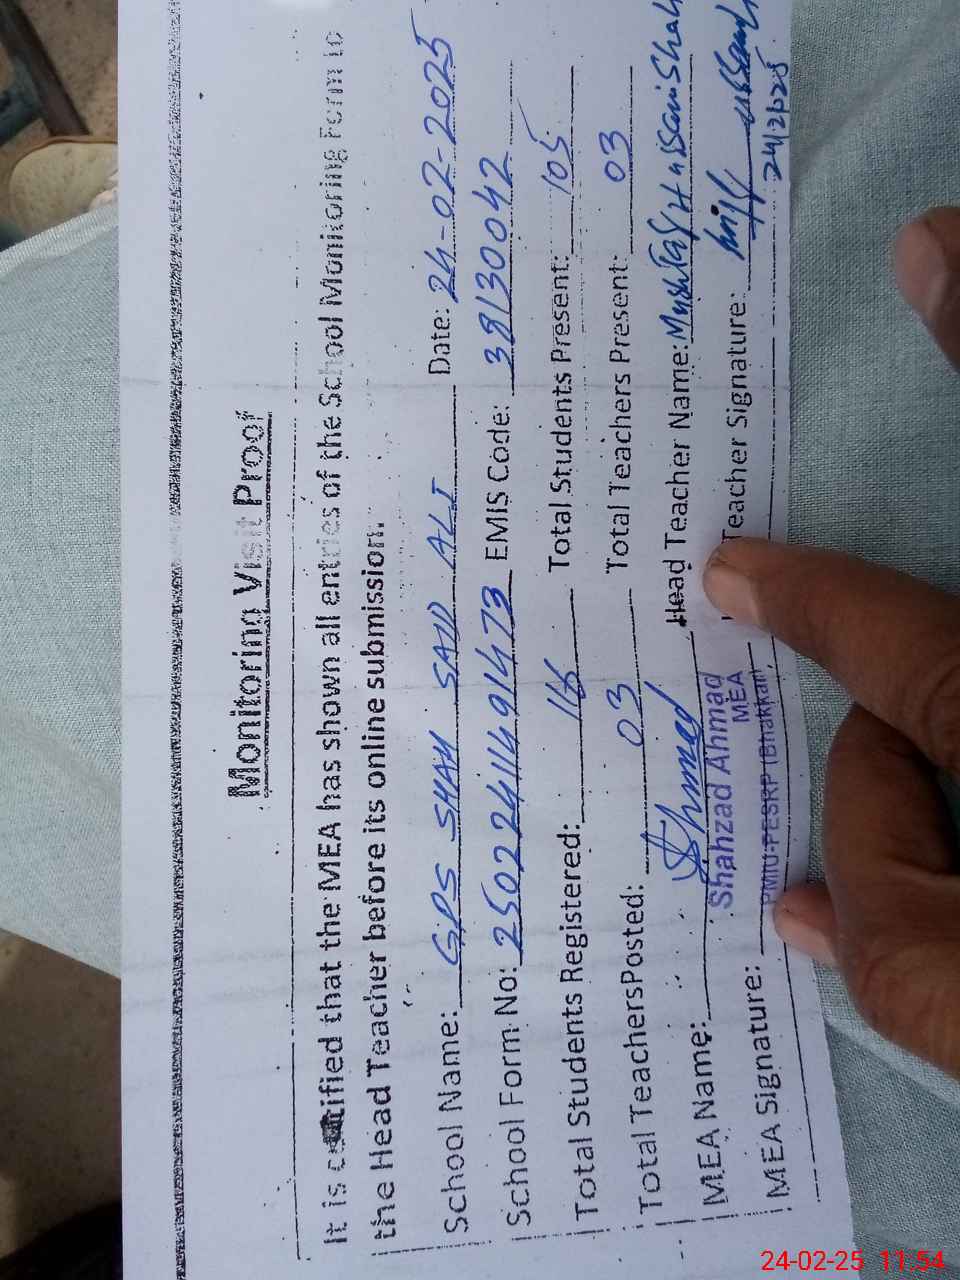 Monitoring Visit Proof
It is certified that the MEA has shown all entries of the School Monitoring Form to
the Head Teacher before its online submission.
School Name: GPS SHAH SAID ALI Date: 24-02-2025
School Form No: 25022411491473 EMIS Code: 38130042
Total Students Registered: Total Students Present: 105
Total Teachers Posted: 03 Total Teachers Present: 03
MEA Name: Ahmad Head Teacher Name: Mushtaq Hussain Shah
Shahzad Ahmad
MEA
PMIU-PESRP (Bhakkar)
MEA Signature: Teacher Signature:
24/2/2025
24-02-25 11:54